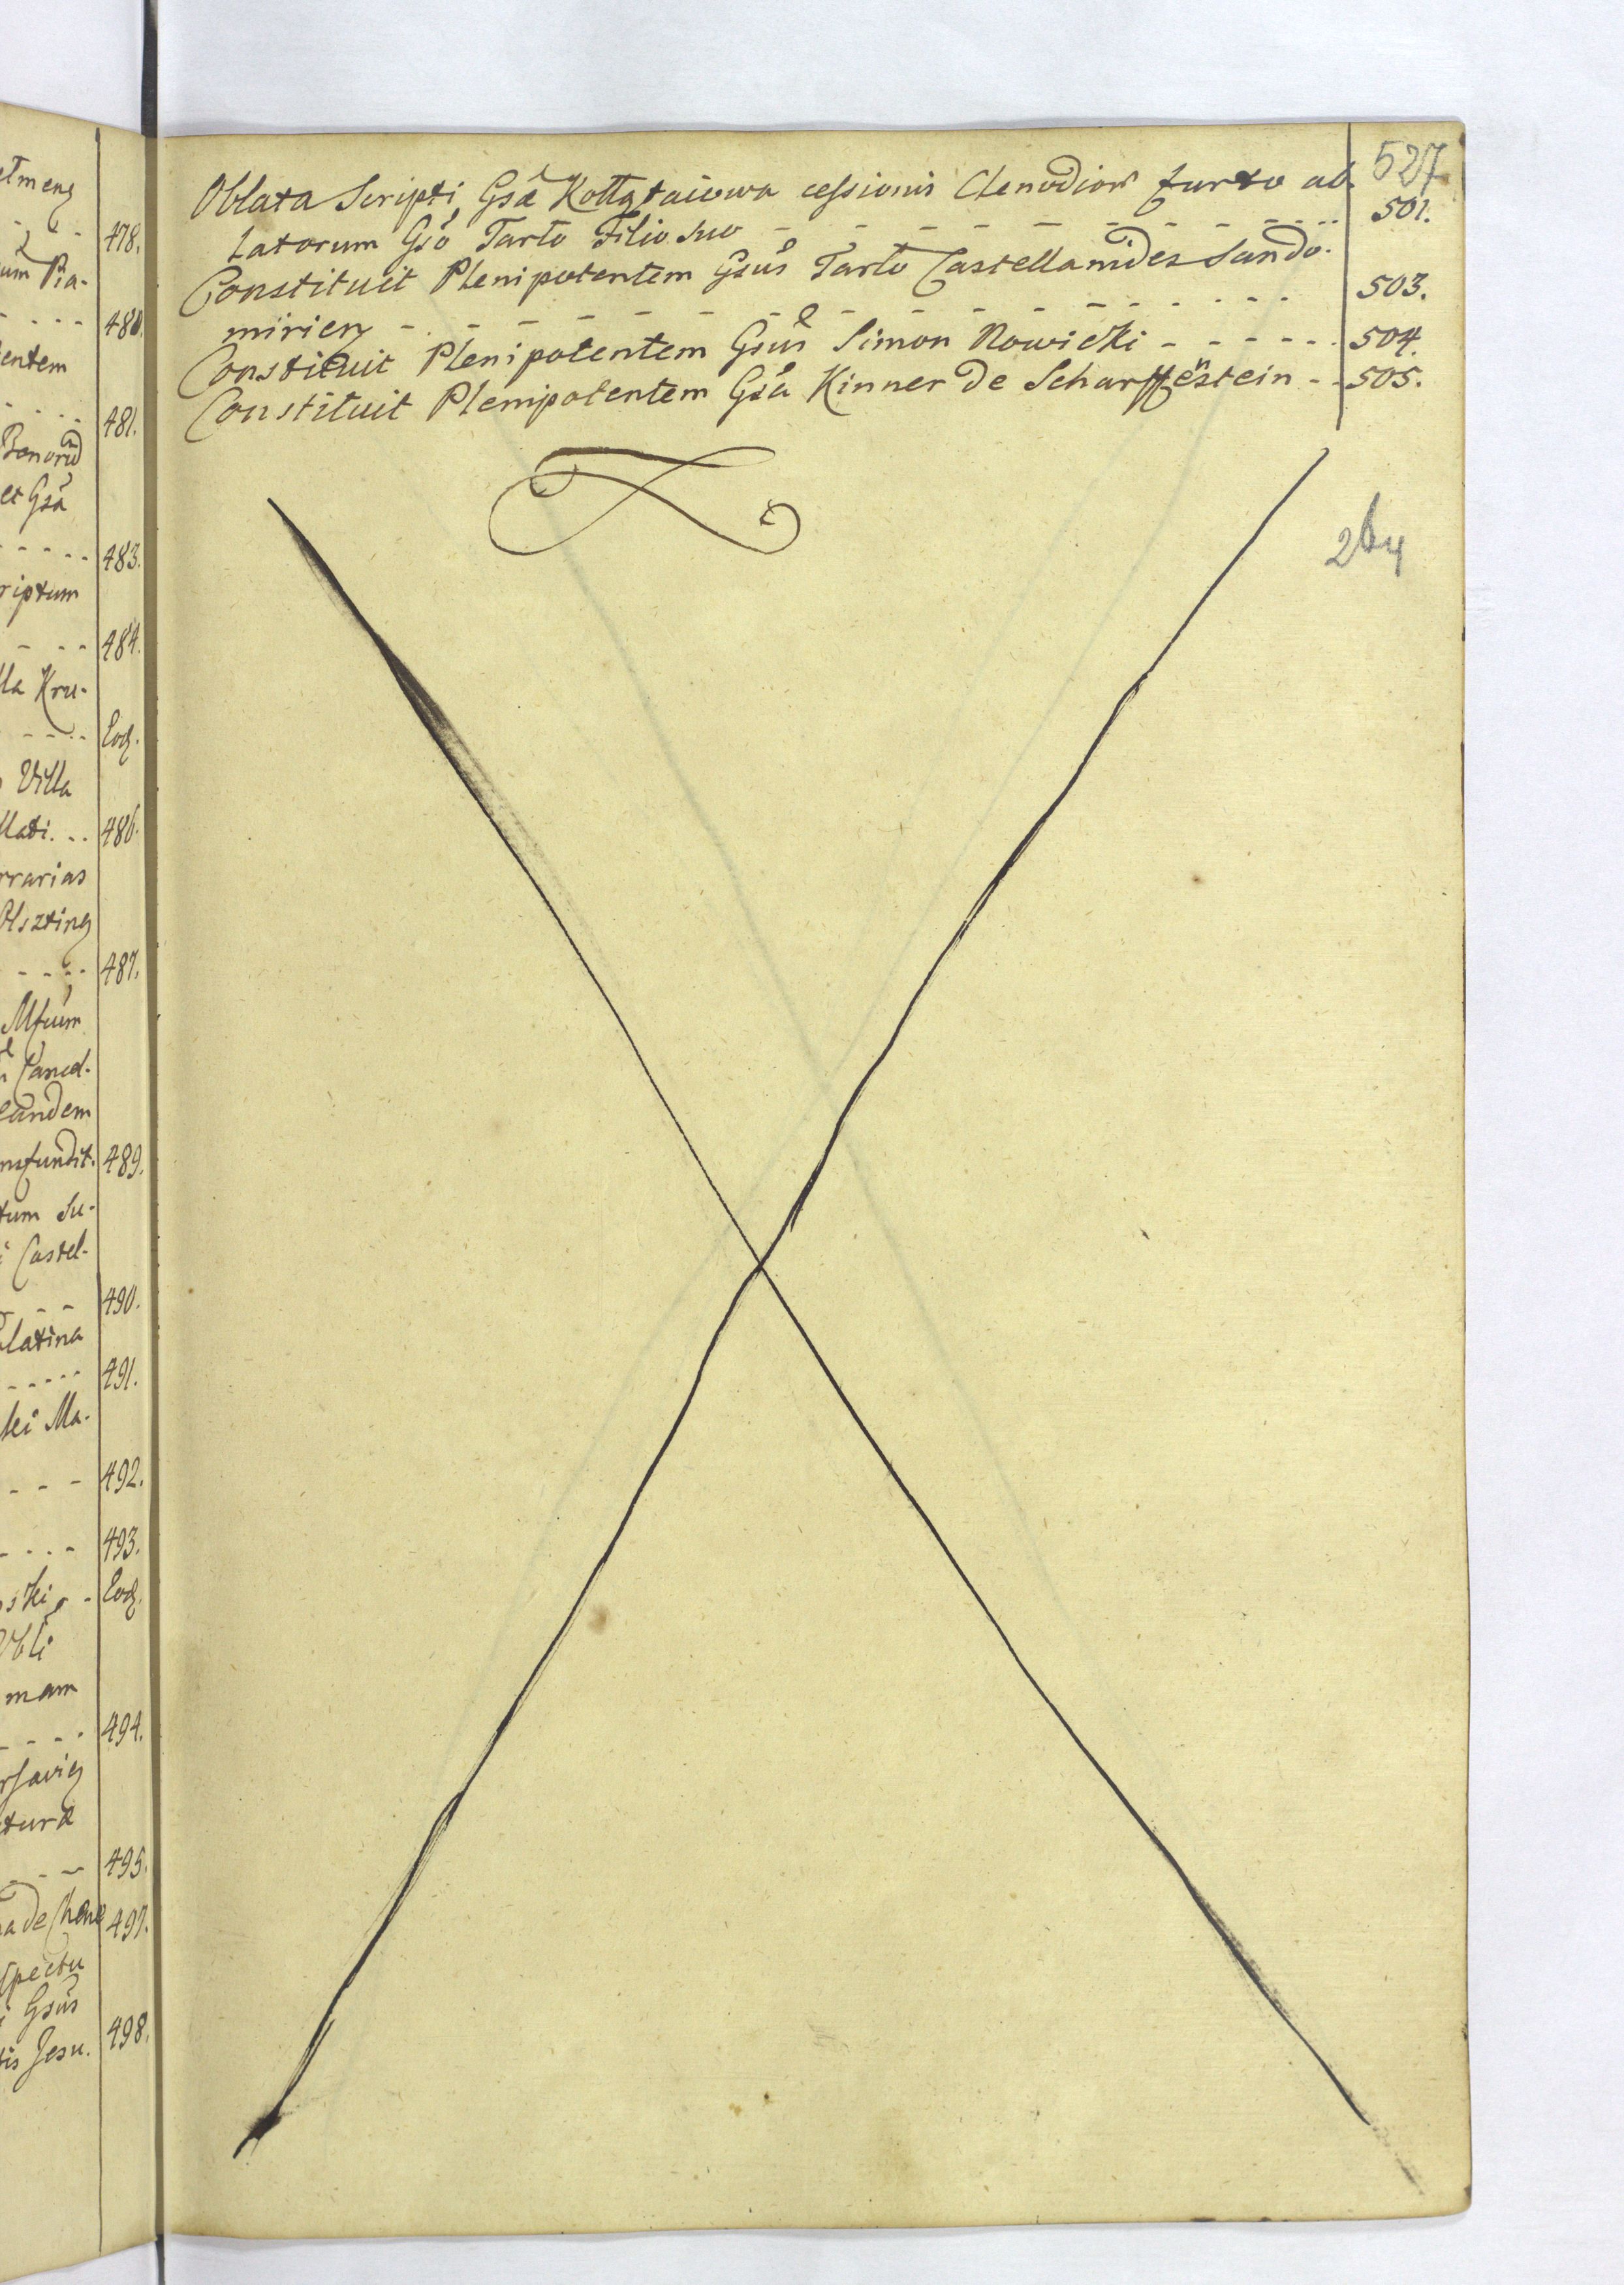 etmen
478.
um Pia-
480.
entem
481.
Bonorū
et Gsa
483.
riptum
484.
lla Kru-
Eod.
Villa
llati. .. 486.
rrarias
Olsztin
487.
Mfum
Cancel-
eandem
nsfundit. 489.
tum Su-
i Castel-
490.
latina
491.
ski Ma-
492.
493.
ski - Eod.
Obli
mam
494.
rsavien
tura
495.
na de Chene 497.
spectu
Gsus
tis Jesu. 498.
527
Oblata Scripti Gsa Kołłątaiowa cessionis Clenodior furto ab- 501.
latorum Gso Tarło Filio suo - - - - - - - - -
Constituit Plenipotentem Gsus Tarło Castellanides Sando-
mirien - - - - - - - - - - - - - 503.
Constituit Plenipotentem Gsus Simon Nowicki - - - - - 504.
Constituit Plenipotentem Gsa Kinner de Scharffestein - - 505.
264